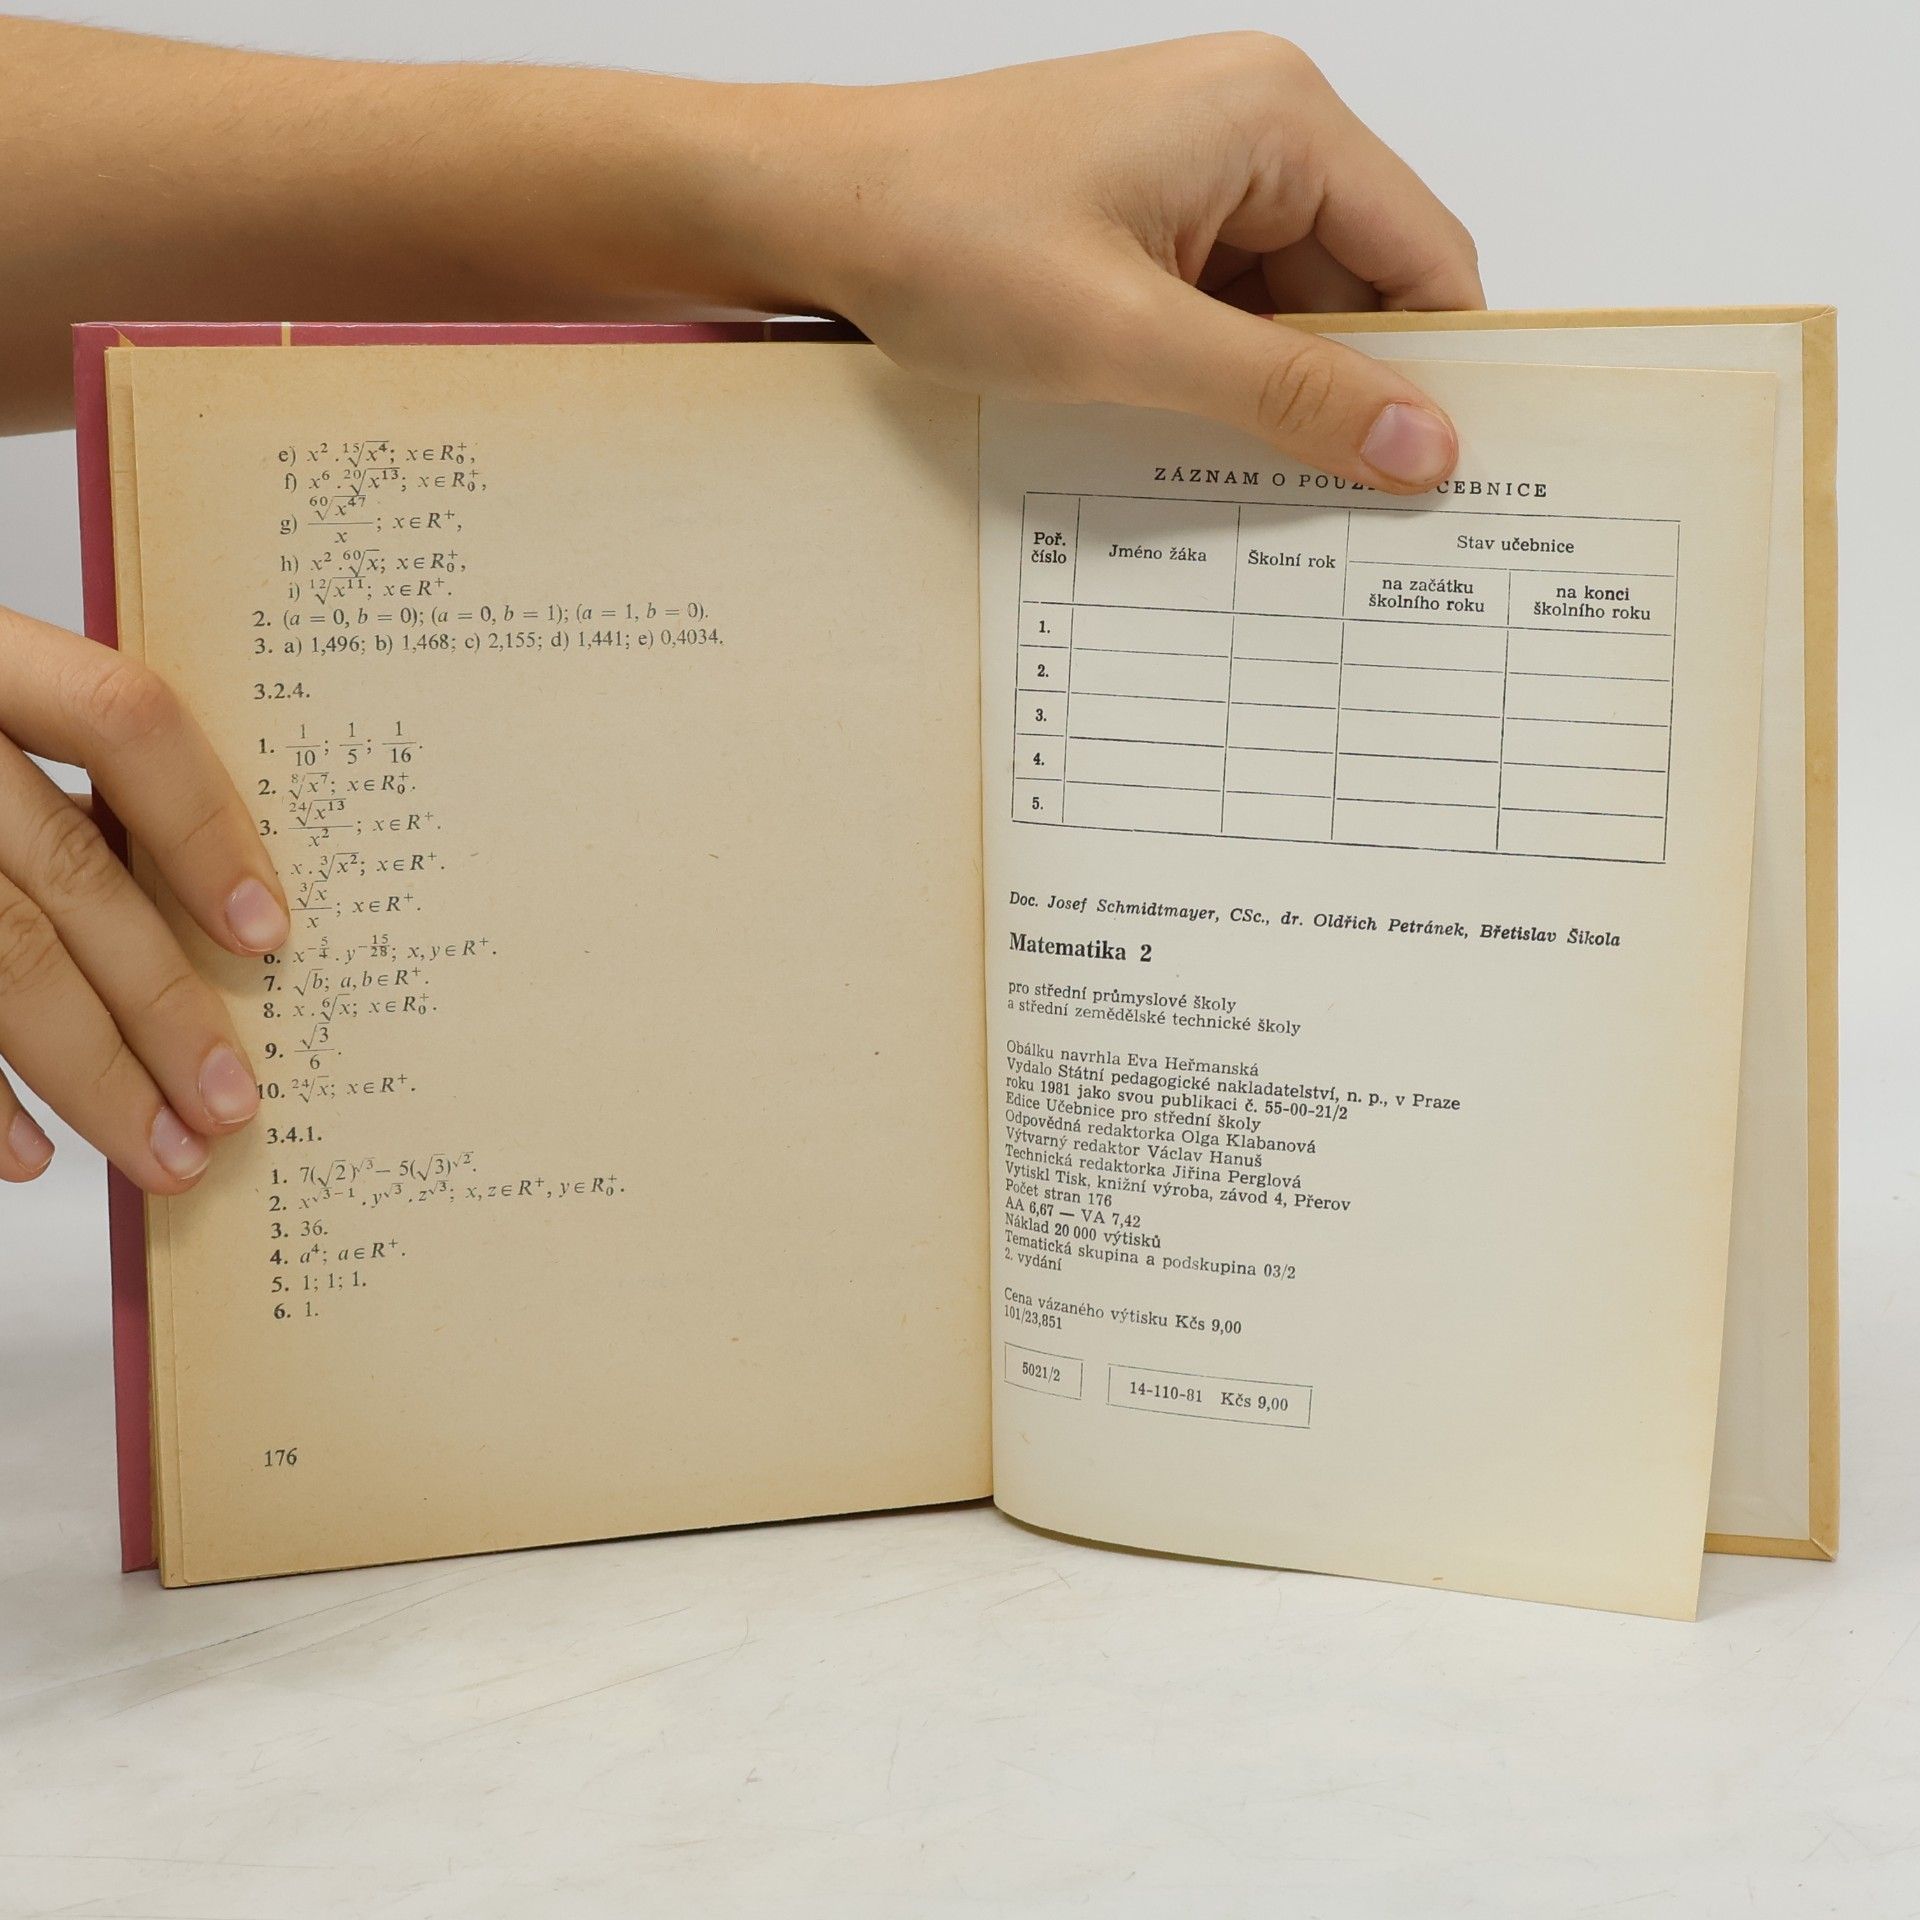 e) x² . ¹⁵√x⁴; x ∈ R₀⁺,
f) x⁶ . ²⁰√x¹³; x ∈ R₀⁺,
g) ⁶⁰√x⁴⁷ / x; x ∈ R⁺,
h) x² . ⁶⁰√x; x ∈ R₀⁺,
i) ¹²√x¹¹; x ∈ R⁺.
2. (a = 0, b = 0); (a = 0, b = 1); (a = 1, b = 0).
3. a) 1,496; b) 1,468; c) 2,155; d) 1,441; e) 0,4034.
3.2.4.
1. 1/10; 1/5; 1/16.
2. ⁸√x⁷; x ∈ R₀⁺.
3. ²⁴√x¹³ / x²; x ∈ R⁺.
. x . ³√x²; x ∈ R⁺.
³√x / x; x ∈ R⁺.
6. x^(−5/4) . y^(−15/28); x, y ∈ R⁺.
7. √b; a, b ∈ R⁺.
8. x . ⁶√x; x ∈ R₀⁺.
9. √3 / 6.
10. ²⁴√x; x ∈ R⁺.
3.4.1.
1. 7(√2)^√3 − 5(√3)^√2.
2. x^(√3−1) . y^√3 . z^√3; x, z ∈ R⁺, y ∈ R₀⁺.
3. 36.
4. a⁴; a ∈ R⁺.
5. 1; 1; 1.
6. 1.
176
ZÁZNAM O UČEBNICE
Poř. číslo Jméno žáka Školní rok Stav učebnice
na začátku školního roku na konci školního roku
1.
2.
3.
4.
5.
Doc. Josef Schmidtmayer, CSc., dr. Oldřich Petránek, Břetislav Šikola
Matematika 2
pro střední průmyslové školy
a střední zemědělské technické školy
Obálku navrhla Eva Heřmanská
Vydalo Státní pedagogické nakladatelství, n. p., v Praze
roku 1981 jako svou publikaci č. 55-00-21/2
Edice Učebnice pro střední školy
Odpovědná redaktorka Olga Klabanová
Výtvarný redaktor Václav Hanuš
Technická redaktorka Jiřina Perglová
Vytiskl Tisk, knižní výroba, závod 4, Přerov
Počet stran 176
AA 6,67 — VA 7,42
Náklad 20 000 výtisků
Tematická skupina a podskupina 03/2
2. vydání
Cena vázaného výtisku Kčs 9,00
101/23,851
5021/2
14-110-81 Kčs 9,00